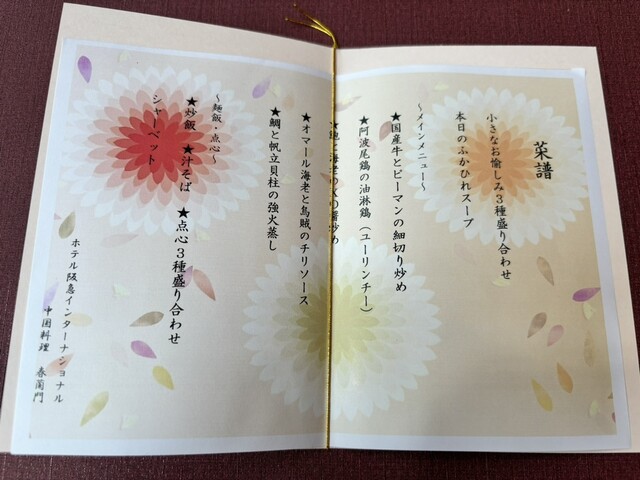 菜譜
小さなお愉しみ3種盛り合わせ
本日のふかひれスープ
～メインメニュー～
★国産牛とピーマンの細切り炒め
★阿波尾鶏の油淋鶏(ユーリンチー)
★オマール海老と烏賊のチリソース
★鯛と帆立貝柱の強火蒸し
～麺飯・点心～
★炒飯 ★汁そば ★点心3種盛り合わせ
シャーベット
ホテル阪急インターナショナル
中国料理 春蘭門